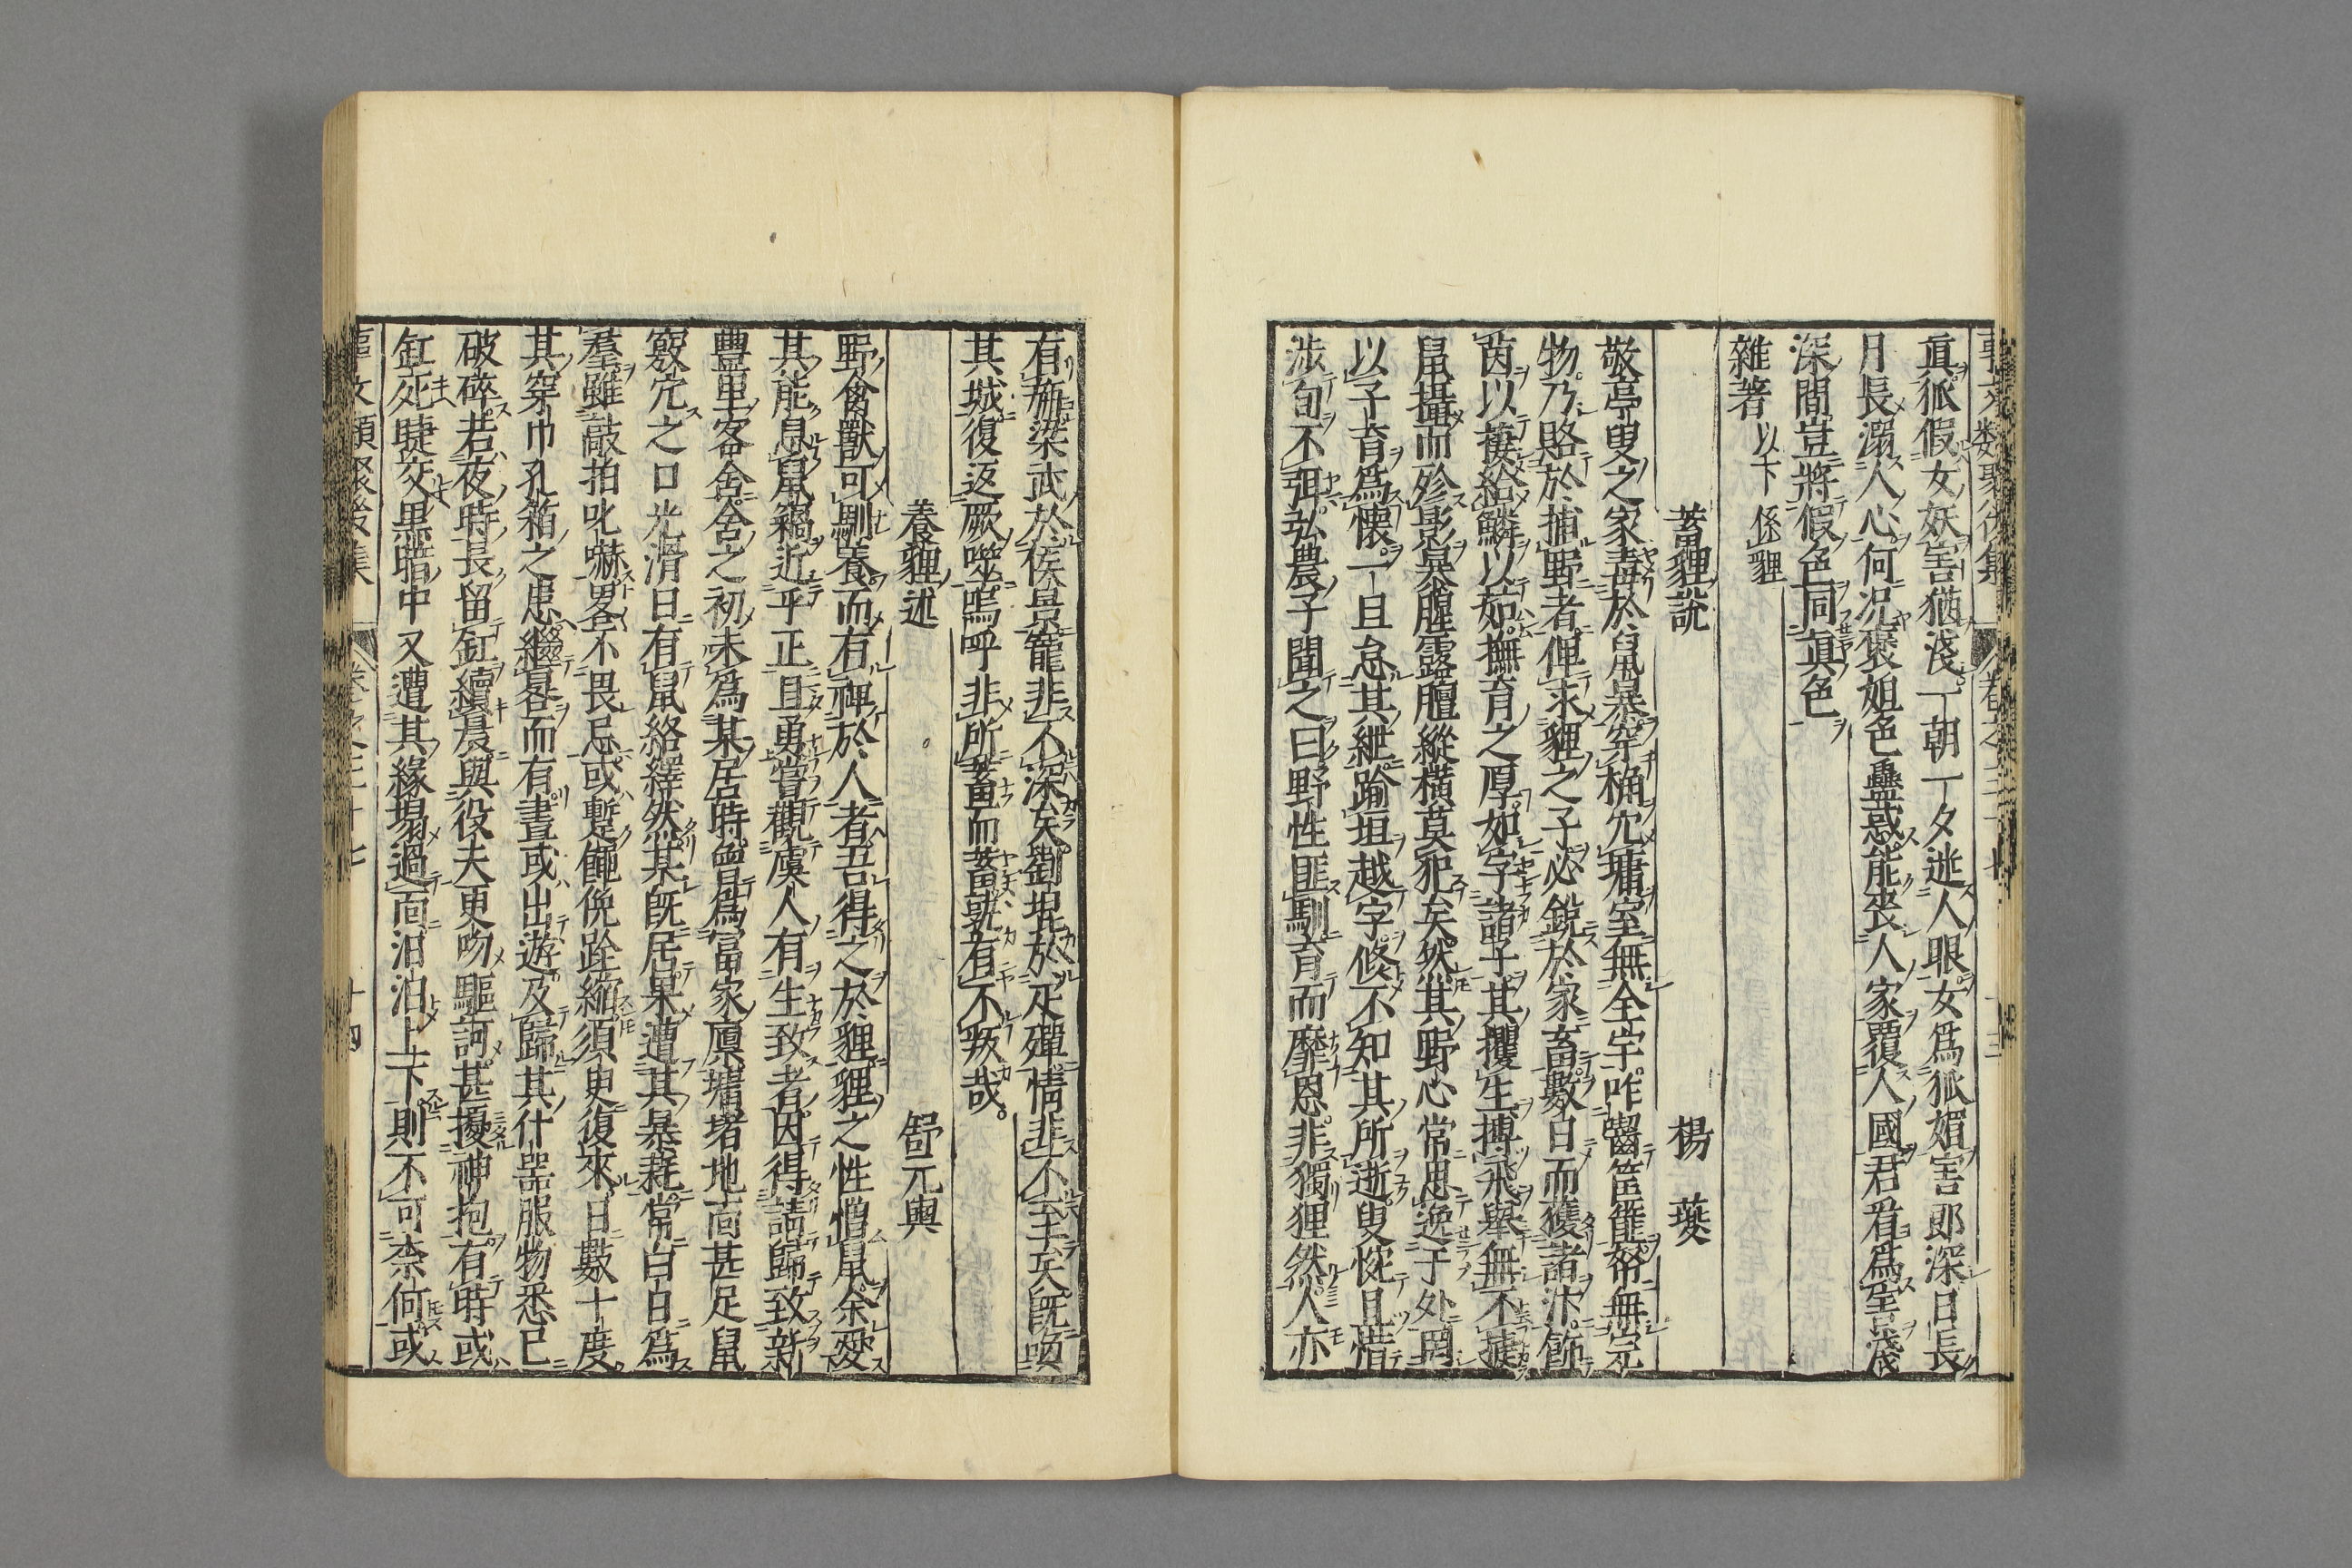 眞狐假女妖害猶淺一朝一夕迷人眼女爲狐媚害卽深日長
月長溺人心何況褒妲色蠱惑能喪人家覆人國君看爲害淺
深間豈將假色同眞色
雜著 以下係貍
蓄貍說 楊夔
敬亭叟之家毒於鼠暴穿桷穴墉室無全宇咋齧筐篚帑無完
物乃賂於捕野者俾求貍之子必銳於家畜數日而獲諸汴飾
茵以棲給鱗以茹撫育之厚如字諸子其攫生搏飛舉無不
鼠攝而殄影暴腥露膻縱橫莫犯矣然其野心常思逸于外罔
以子育爲懷一旦怠其紲踰垣越宇倏不知其所逝叟惋且惜
涉旬不弭弘農子聞之曰野性匪馴育而靡恩非獨狸然人亦
有旃梁武於侯景寵非不深矣劉琨於疋磾情非不至矣既
其城復返厥噬嗚呼非所蓄而蓄孰有不叛哉
養貍述 舒元輿
野禽獸可馴養而有裨於人者吾得之於貍貍之性憎鼠余愛
其能息鼠竊近乎正且勇嘗觀虞人有生致者因得請歸致新
豐里客舍舍之初未爲某居時曾爲富家廩墉堵地面甚足鼠
竅穴之口光滑日有鼠絡繹然某旣居果遭其暴耗常白日爲
羣雖敲拍叱嚇略不畏忌或蹔僶俛跧縮須臾復來日數十度
其穿巾孔箱之患繼晷而有晝或出遊及歸其什器服物悉已
破碎若夜時長留缸續晨與役夫更吻驅訶甚擾神抱有時或
缸死睫交黑暗中又遭其緣榻過面泊泊上下則不可柰何或